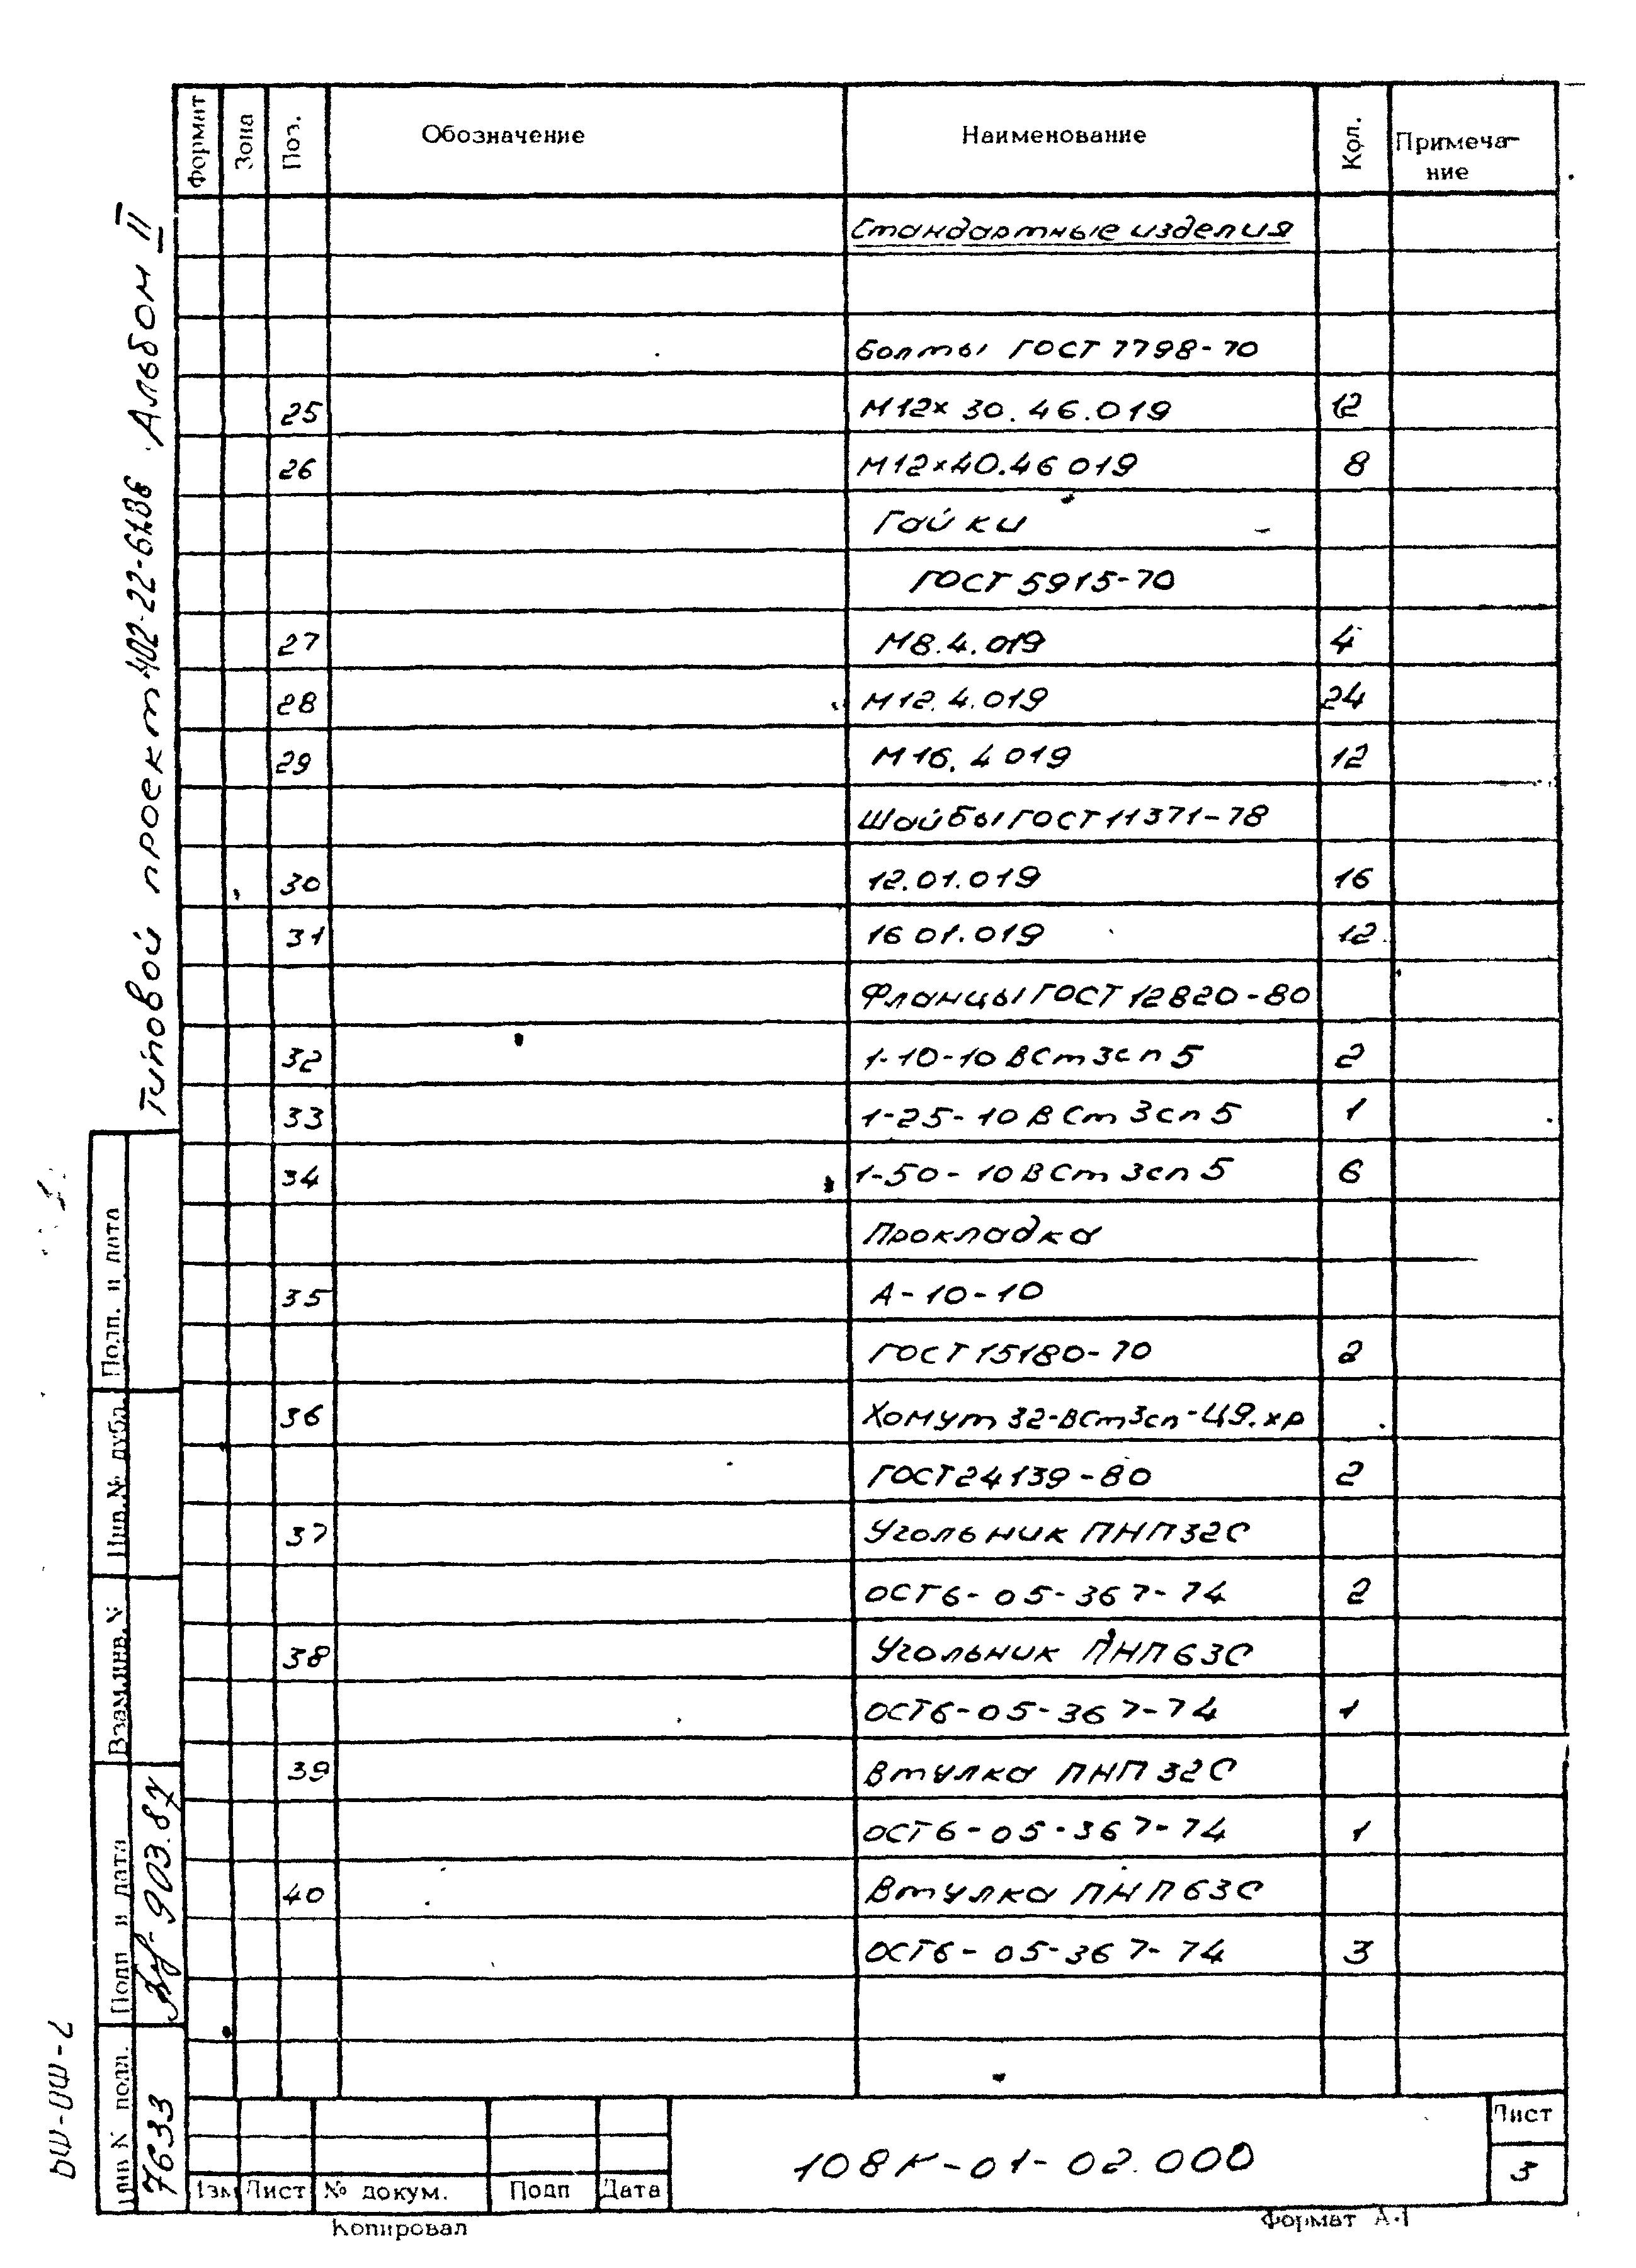 Формат Зона Поз. Обозначение Наименование Кол. Примеча-
ние
Стандартные изделия
Болты ГОСТ 7798-70
25 М12х30.46.019 12
26 М12х40.46 019 8
Гайки
ГОСТ 5915-70
27 М8.4.019 4
28 М12.4.019 24
29 М16.4 019 12
Шайбы ГОСТ 11371-78
30 12.01.019 16
31 16 01.019 12
Фланцы ГОСТ 12820-80
32 1-10-10 ВСт3сп5 2
33 1-25-10 ВСт3сп5 1
34 1-50-10 ВСт3сп5 6
Прокладка
35 А-10-10
ГОСТ 15180-70 2
36 Хомут 32-ВСт3сп-Ц9.хр
ГОСТ 24139-80 2
37 Угольник ПНП32С
ОСТ6-05-367-74 2
38 Угольник ПНП63С
ОСТ6-05-367-74 1
39 Втулка ПНП32С
ОСТ6-05-367-74 1
40 Втулка ПНП63С
ОСТ6-05-367-74 3
Изм Лист № докум. Подп Дата
108К-01-02.000
Лист
3
Копировал
Формат А4
Типовой проект 402-22-61.86 Альбом II
Подп. и дата
Инв.№ дубл.
Взам.инв.№
Подп и дата
903.87
Инв № подл.
7633